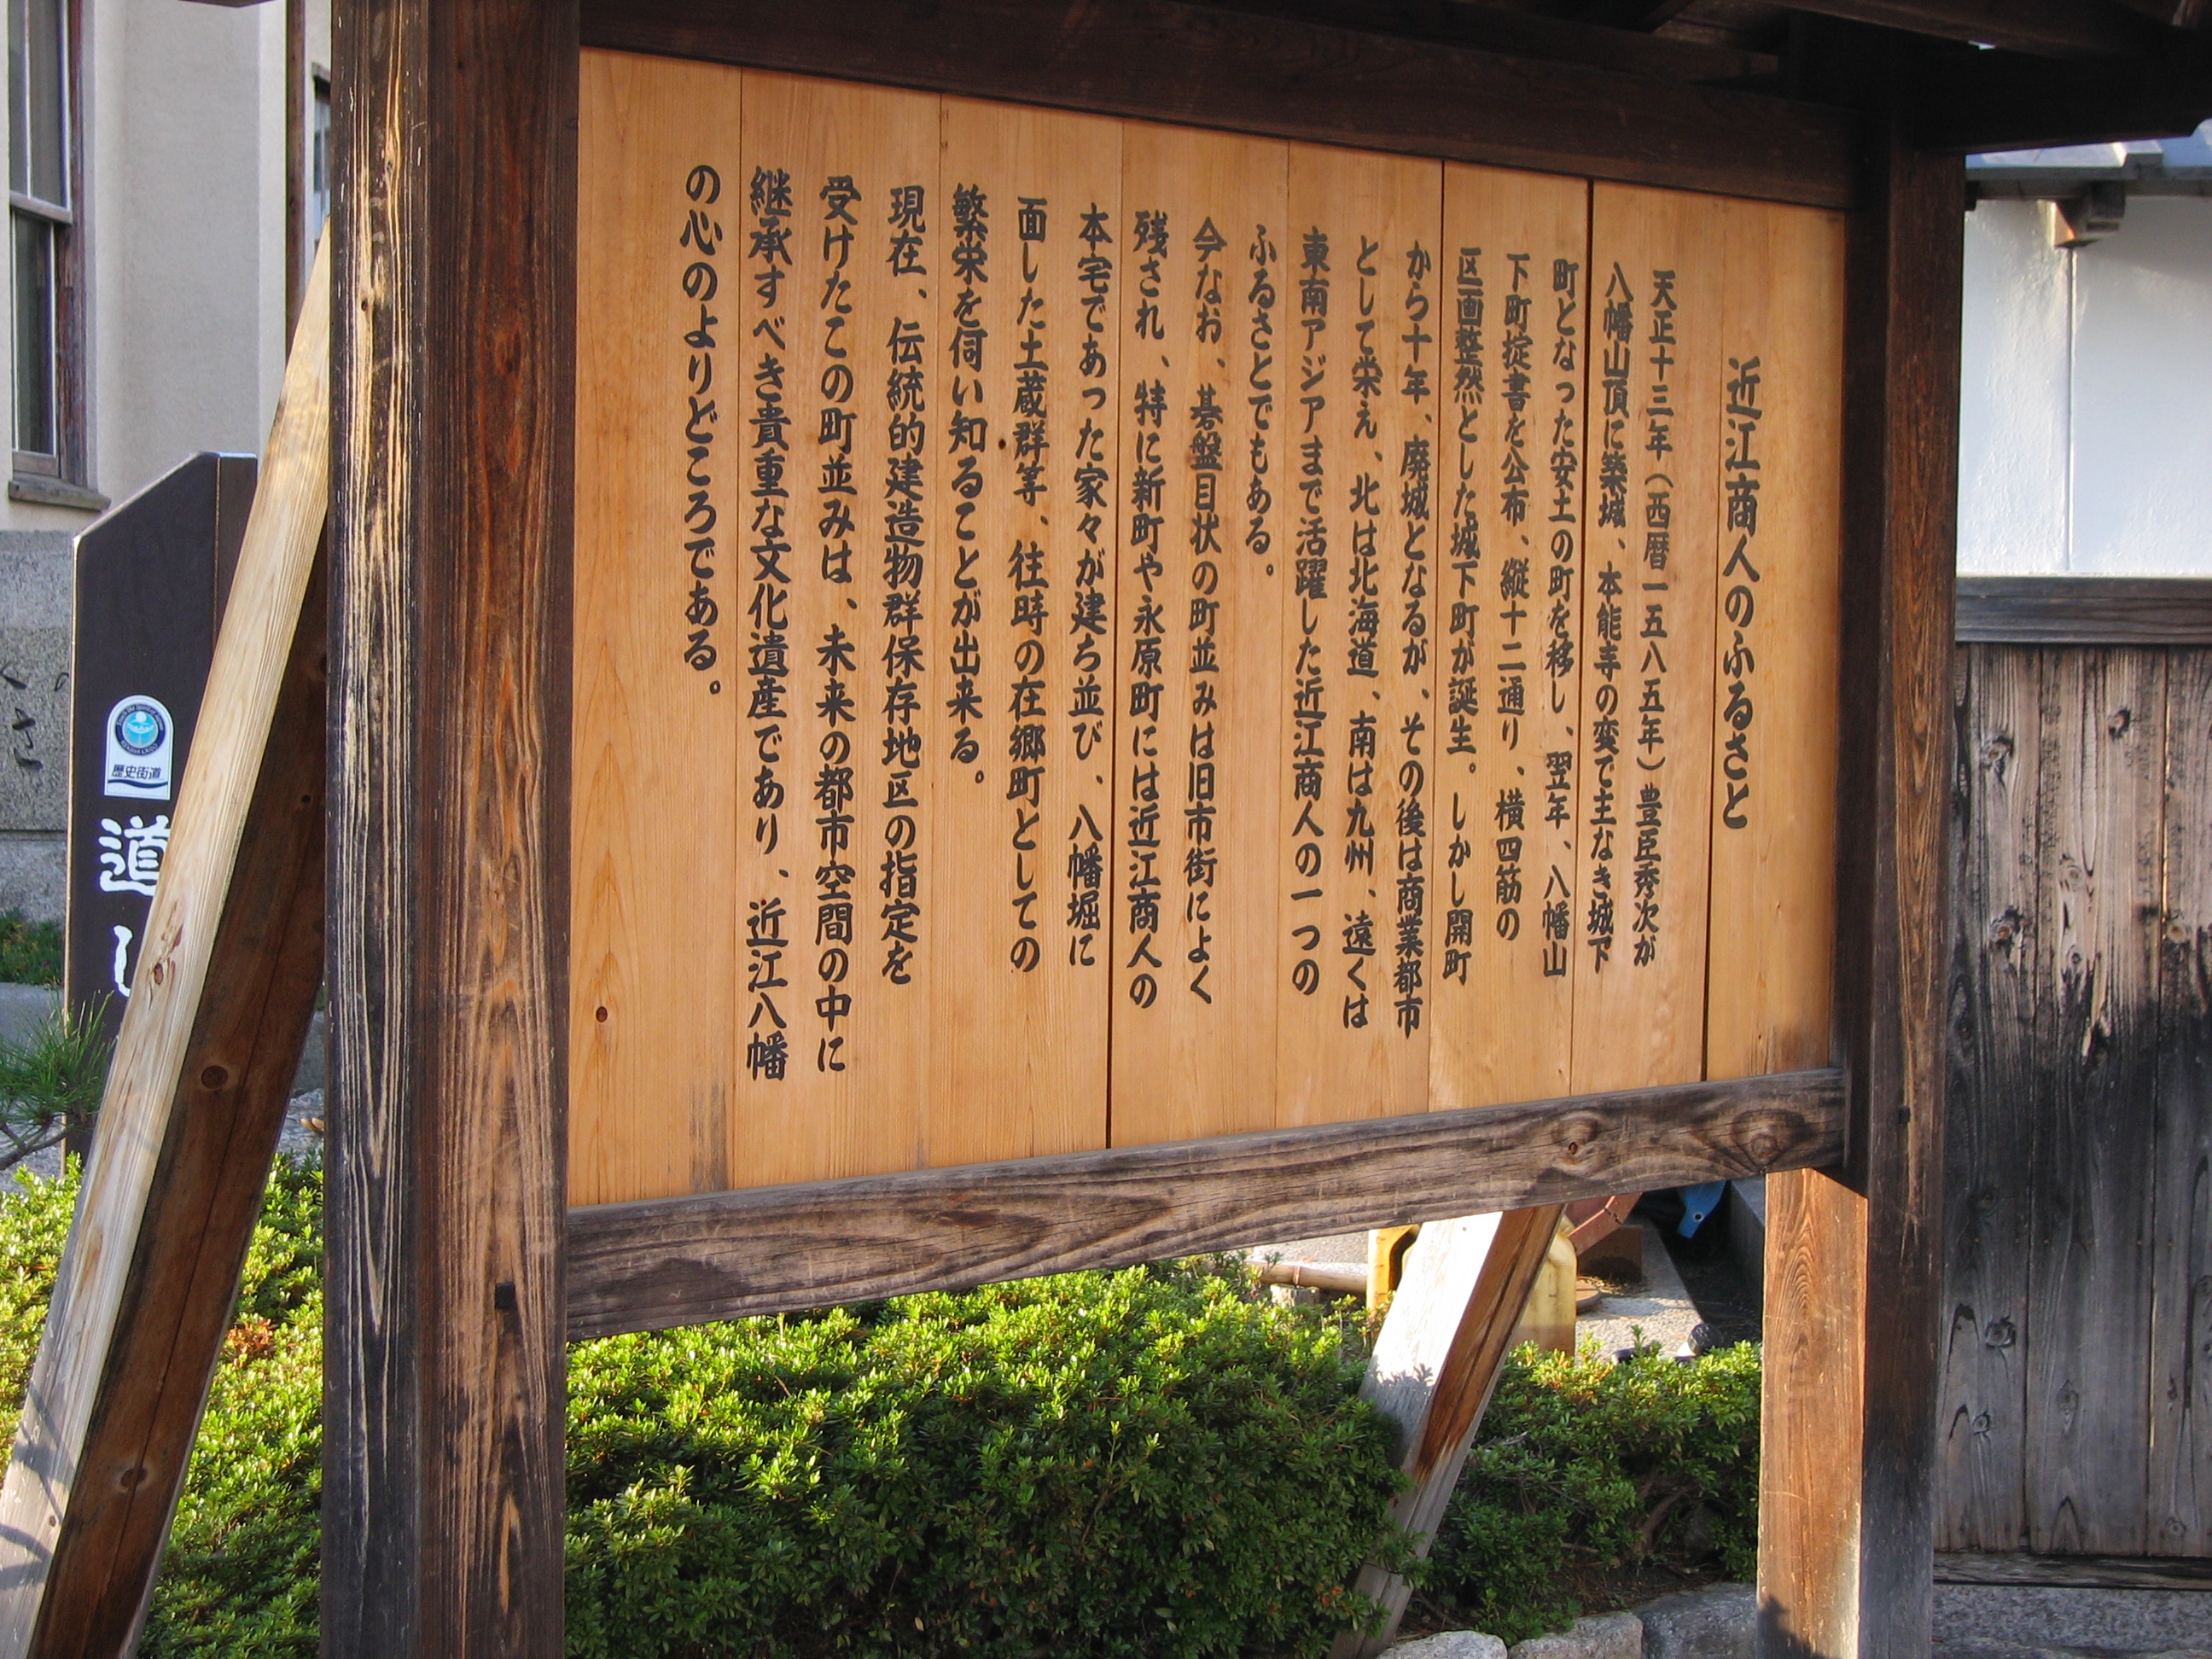 近江商人のふるさと
天正十三年（西暦一五八五年）豊臣秀次が
八幡山頂に築城、本能寺の変で主なき城下
町となった安土の町を移し、翌年、八幡山
下町掟書を公布、縦十二通り、横四筋の
区画整然とした城下町が誕生。しかし開町
から十年、廃城となるが、その後は商業都市
として栄え、北は北海道、南は九州、遠くは
東南アジアまで活躍した近江商人の一つの
ふるさとでもある。
今なお、碁盤目状の町並みは旧市街によく
残され、特に新町や永原町には近江商人の
本宅であった家々が建ち並び、八幡堀に
面した土蔵群等、往時の在郷町としての
繁栄を伺い知ることが出来る。
現在、伝統的建造物群保存地区の指定を
受けたこの町並みは、未来の都市空間の中に
継承すべき貴重な文化遺産であり、近江八幡
の心のよりどころである。
歴史街道
道